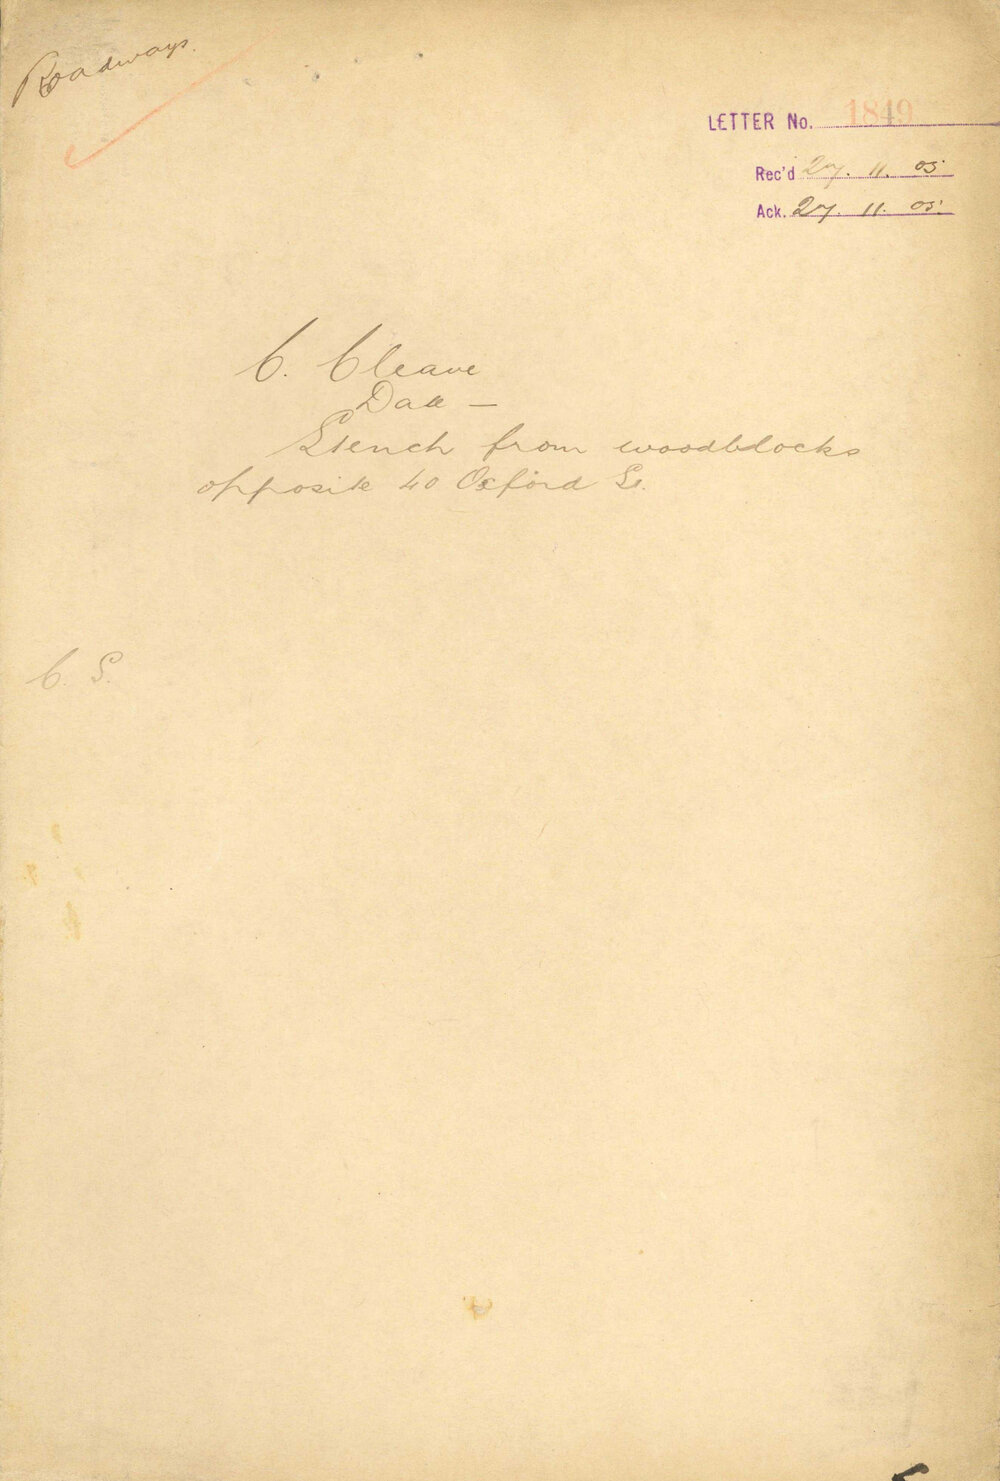 Roadways.
LETTER No. 1849
Rec'd 27. 11. 05
Ack. 27. 11. 05.
C. Cleave
Date —
Stench from woodblocks
opposite 40 Oxford St.
C. S.